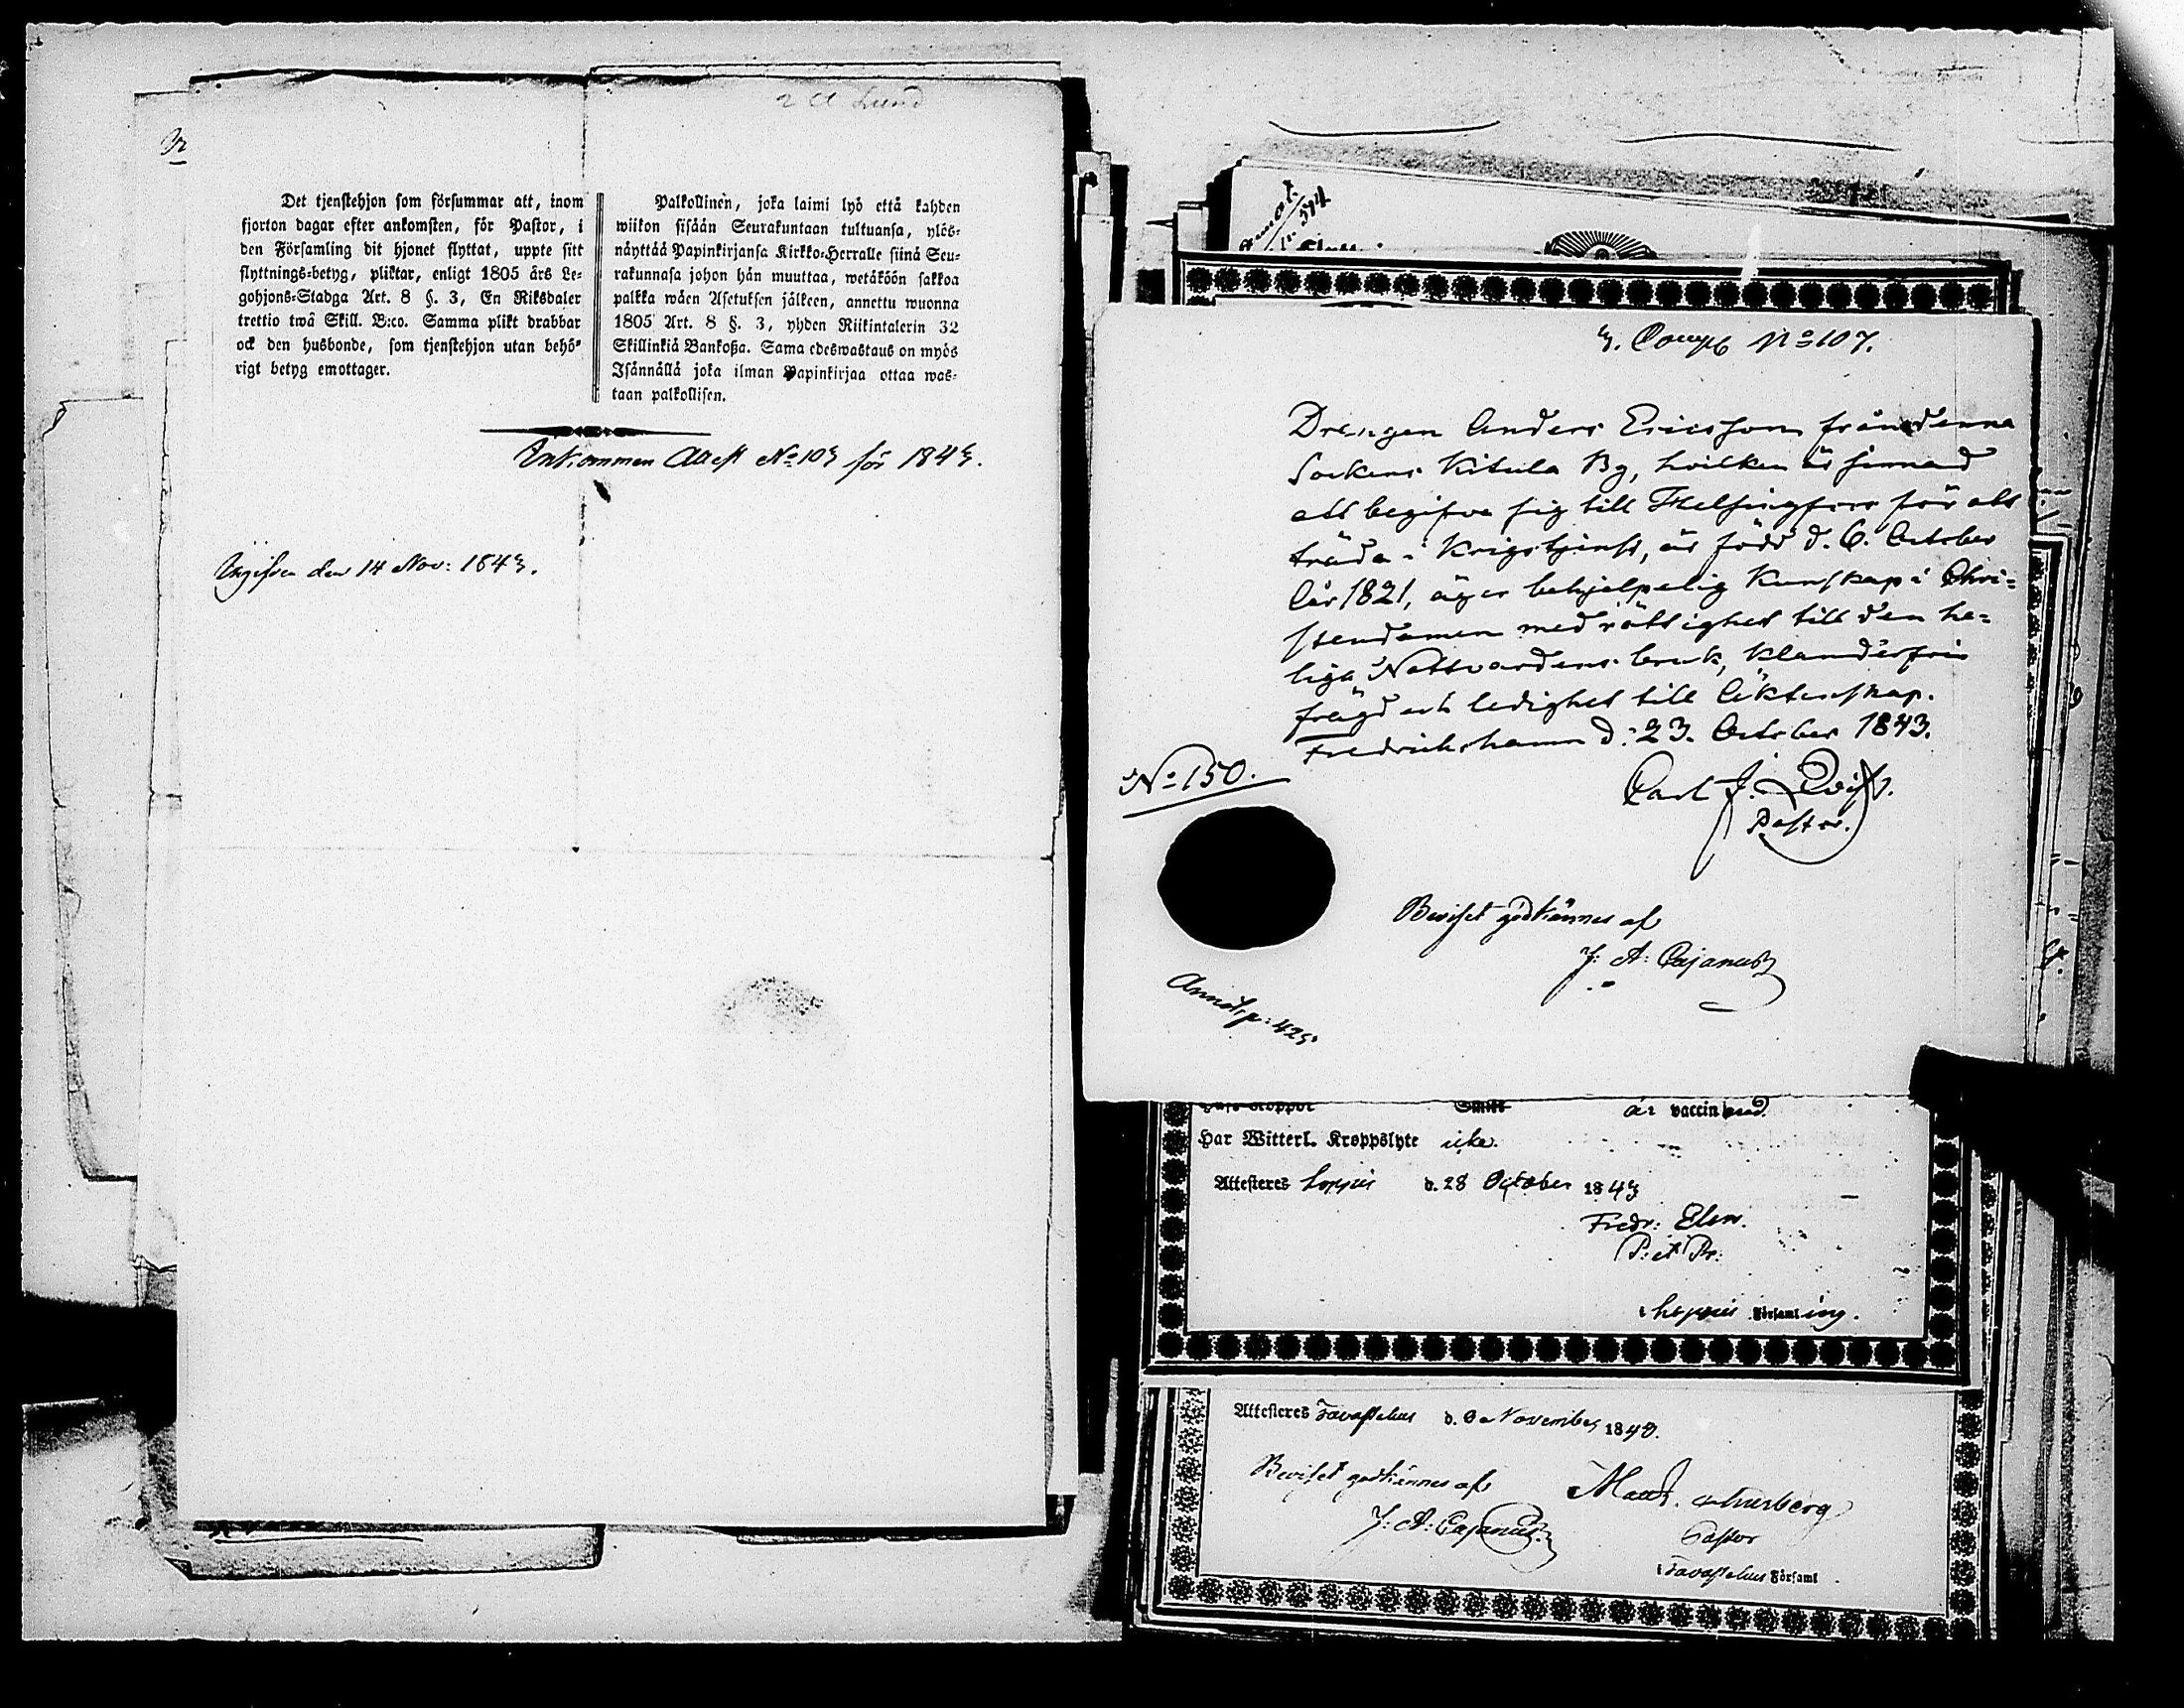 2 Cl Lund
Det tjenstehjon som försummar att, inom
fjorton dagar efter ankomsten, för Pastor, i
den Församling dit hjonet flyttat, uppte sitt
flyttnings-betyg, pliktar, enligt 1805 års Le-
gohjons-Stadga Art. 8 §. 3, En Riksdaler
trettio twå Skill. B:co. Samma plikt drabbar
ock den husbonde, som tjenstehjon utan behö-
rigt betyg emottager.
Palkollinen, joka laimi lyö että kahden
wiikon sisään Seurakuntaan tultuansa, ylös-
näyttää Papinkirjansa Kirkko-Herralle siinä Seu-
rakunnasa johon hän muuttaa, wetäköön sakkoa
palkka wäen Asetuksen jälkeen, annettu wuonna
1805 Art. 8 §. 3, yhden Riikintalerin 32
Skillinkiä Bankoßa. Sama edeswastaus on myös
Isännällä joka ilman Papinkirjaa ottaa was-
taan palkollisen.
Inkommen Attest No 103 för 1843.
Uugifven den 14 Nov: 1843.
3. Comp No 107.
Drengen Anders Ericsson från denna
Sockens Kitula By, hvilken är sinnad
att begifva sig till Helsingfors för att
träda i Krigstjenst, är född d. 6. October
År 1821, äger behjelpelig Kunskap i Chri-
stendomen med rättighet till den he-
liga Nattvardens bruk, klanderfri
frägd och ledighet till Äktenskap.
Fredrichshamn d: 23. October 1843.
No 150.
Carl J.
Pastor.
Beviset godkännes af
J: A: Cajanus
Annot. p: 425.
är vaccinerad.
Har Witterl. Kroppslyte icke.
Attesteres Loppis d. 28 October 1843
Fredr: Elen.
P: et Pr:
i Loppis Församling.
Attesteres Tavastehus d. November 1843.
Beviset godkännes af
J: A: Cajanus
Pastor
i Tavastehus Församl